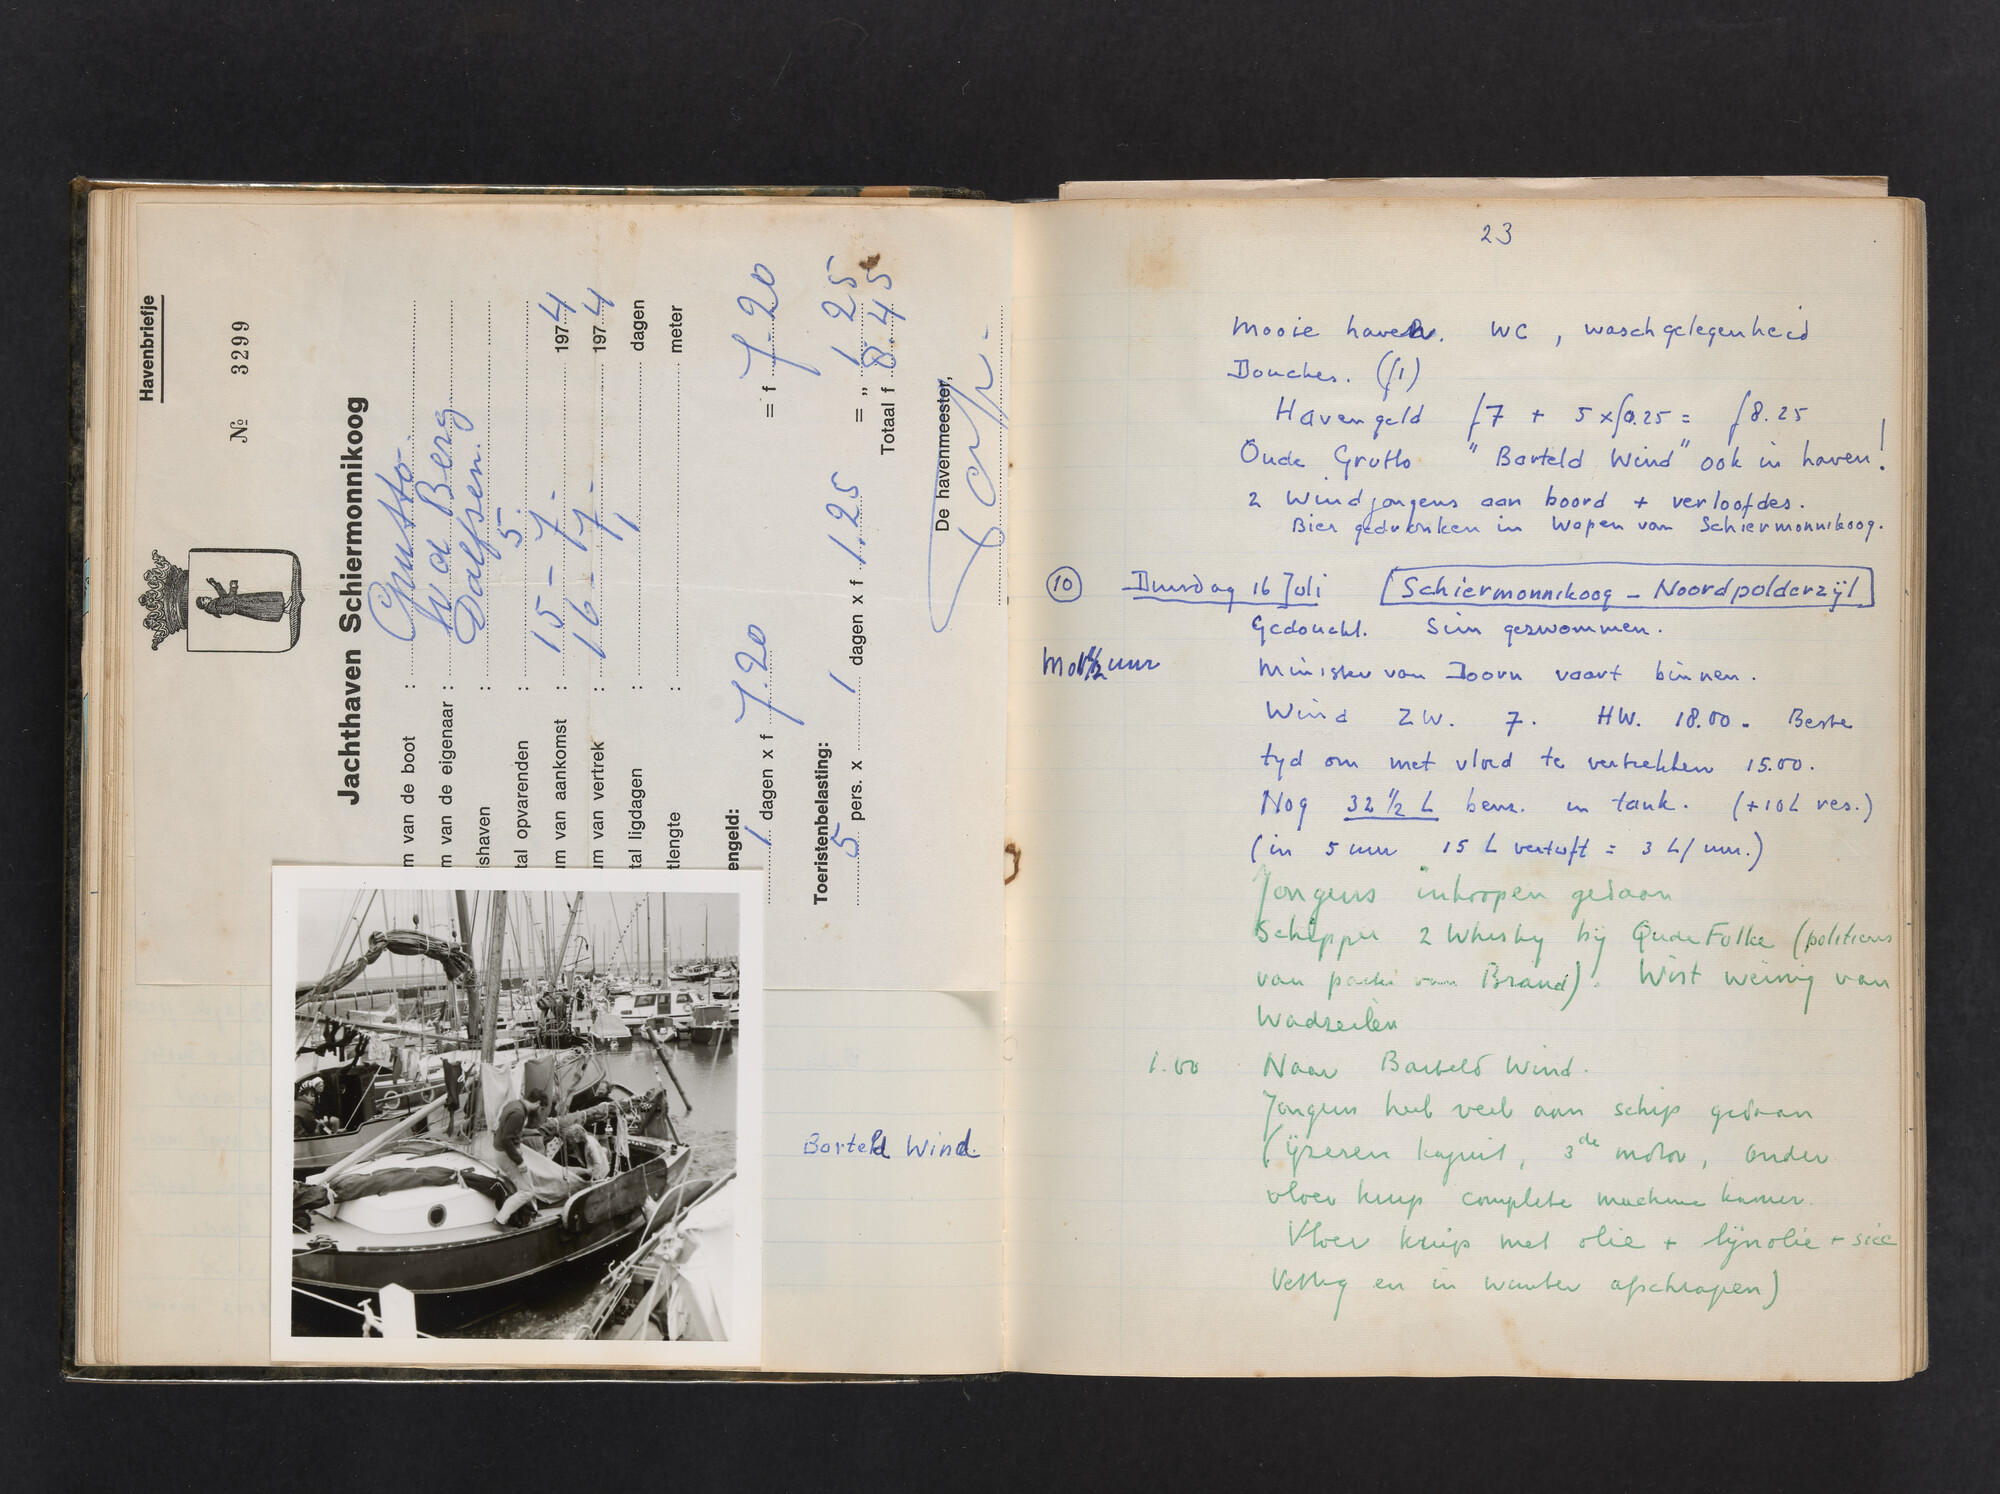 Havenbriefje
№ 3299
Jachthaven Schiermonnikoog
m van de boot : Grutto
m van de eigenaar : v d Berg
ishaven : Dalfsen.
tal opvarenden : 5.
um van aankomst : 15 - 7 - 1974
um van vertrek : 16 - 7 - 1974
tal ligdagen : 1 dagen
tlengte : meter
engeld:
1 dagen x f 7.20 = f 7.20
Toeristenbelasting:
5 pers. x 1 dagen x f 1.25 = „ 1 25
Totaal f 8.45
De havenmeester,
Barteld Wind.
23
Mooie haven. WC, waschgelegenheid
Douches. (f1)
Havengeld f7 + 5 x f0.25 = f8.25
Oude Grutto "Barteld Wind" ook in haven!
2 Windjongens aan boord + verloofdes.
Bier gedronken in Wapen van Schiermonnikoog.
10 Dinsdag 16 Juli Schiermonnikoog - Noordpolderzijl
Gedoucht. Siem gezwommen.
uur Minister van Doorn vaart binnen.
Wind ZW. 7. HW. 18.00. Beste
tyd om met vloed te vertrekken 15.00.
Nog 32 1/2 L benz. in tank. (+10L res.)
(in 5 uur 15 L verstookt = 3 L/uur.)
Jongens inkoopen gedaan
Schipper 2 Whisky bij Oude Fokke (politicus
van partij van Brand). Wist weinig van
Wadzeilen
1.00 Naar Barteld Wind.
Jongens heel veel aan schip gedaan
(ijzeren kajuit, 3de motor, onder
vloer kuip complete machine kamer.
Vloer kuip met olie + lijnolie + sicc
Vettig en in winter afschrapen)